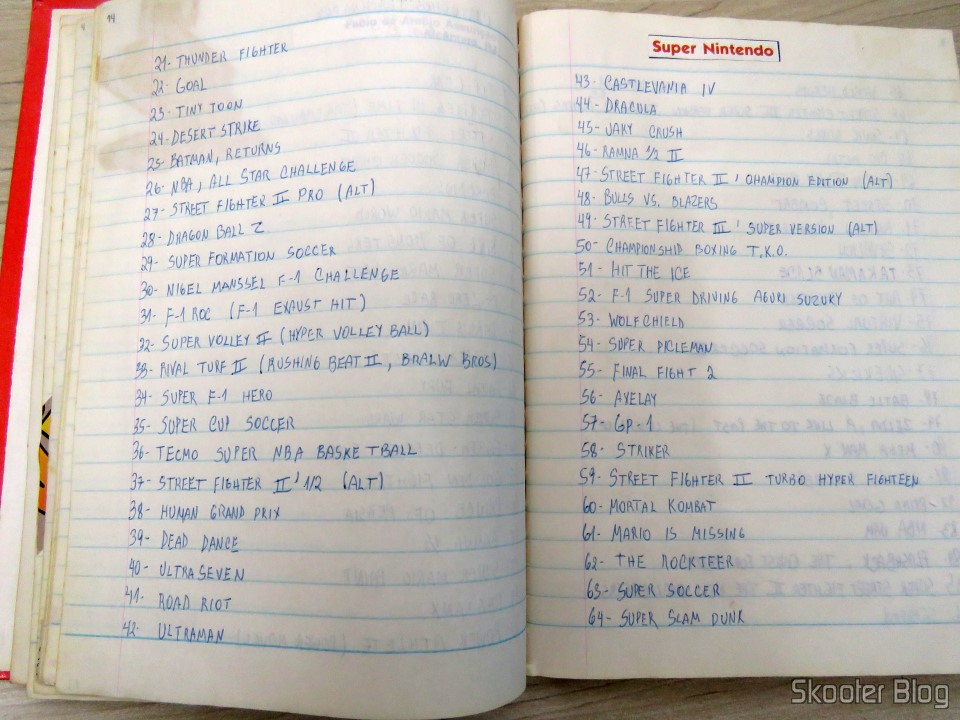 14
21- THUNDER FIGHTER
22- GOAL
23- TINY TOON
24- DESERT STRIKE
25- BATMAN, RETURNS
26- NBA, ALL STAR CHALLENGE
27- STREET FIGHTER II PRO (ALT)
28- DRAGON BALL Z
29- SUPER FORMATION SOCCER
30- NIGEL MANSSEL F-1 CHALLENGE
31- F-1 ROC (F-1 EXAUST HIT)
32- SUPER VOLLEY II (HYPER VOLLEY BALL)
33- RIVAL TURF II (RUSHING BEAT II, BRALW BROS)
34- SUPER F-1 HERO
35- SUPER CUP SOCCER
36- TECMO SUPER NBA BASKETBALL
37- STREET FIGHTER II' 1/2 (ALT)
38- HUMAN GRAND PRIX
39- DEAD DANCE
40- ULTRA SEVEN
41- ROAD RIOT
42- ULTRAMAN
Super Nintendo
43- CASTLEVANIA IV
44- DRACULA
45- JAKY CRUSH
46- RAMNA 1/2 II
47- STREET FIGHTER II' CHAMPION EDITION (ALT)
48- BULLS VS. BLAZERS
49- STREET FIGHTER III' SUPER VERSION (ALT)
50- CHAMPIONSHID BOXING T.K.O.
51- HIT THE ICE
52- F-1 SUPER DRIVING AGURI SUZUKY
53- WOLFCHIELD
54- SUPER PICLEMAN
55- FINAL FIGHT 2
56- AXELAY
57- GP-1
58- STRIKER
59- STREET FIGHTER II TURBO HYPER FIGHTEEN
60- MORTAL KOMBAT
61- MARIO IS MISSING
62- THE ROCKTEER
63- SUPER SOCCER
64- SUPER SLAM DUNK
Skooter Blog